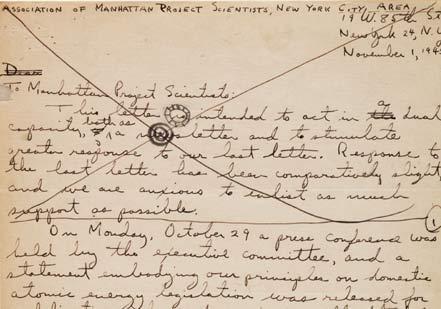 ASSOCIATION OF MANHATTAN PROJECT SCIENTISTS, NEW YORK CITY AREA
19 W. 85th St
New York 24, N.Y
November 1, 194
Dear
To Manhattan Project Scientists:
This letter is intended to act in the a dual
capacity, both as a newsletter and to stimulate
greater response to our last letter. Response to
the last letter has been comparatively slight
and we are anxious to enlist as much
support as possible.
On Monday, October 29 a press conference was
held by the executive committee, and a
statement embodying our principles on domestic
atomic energy legislation was released for